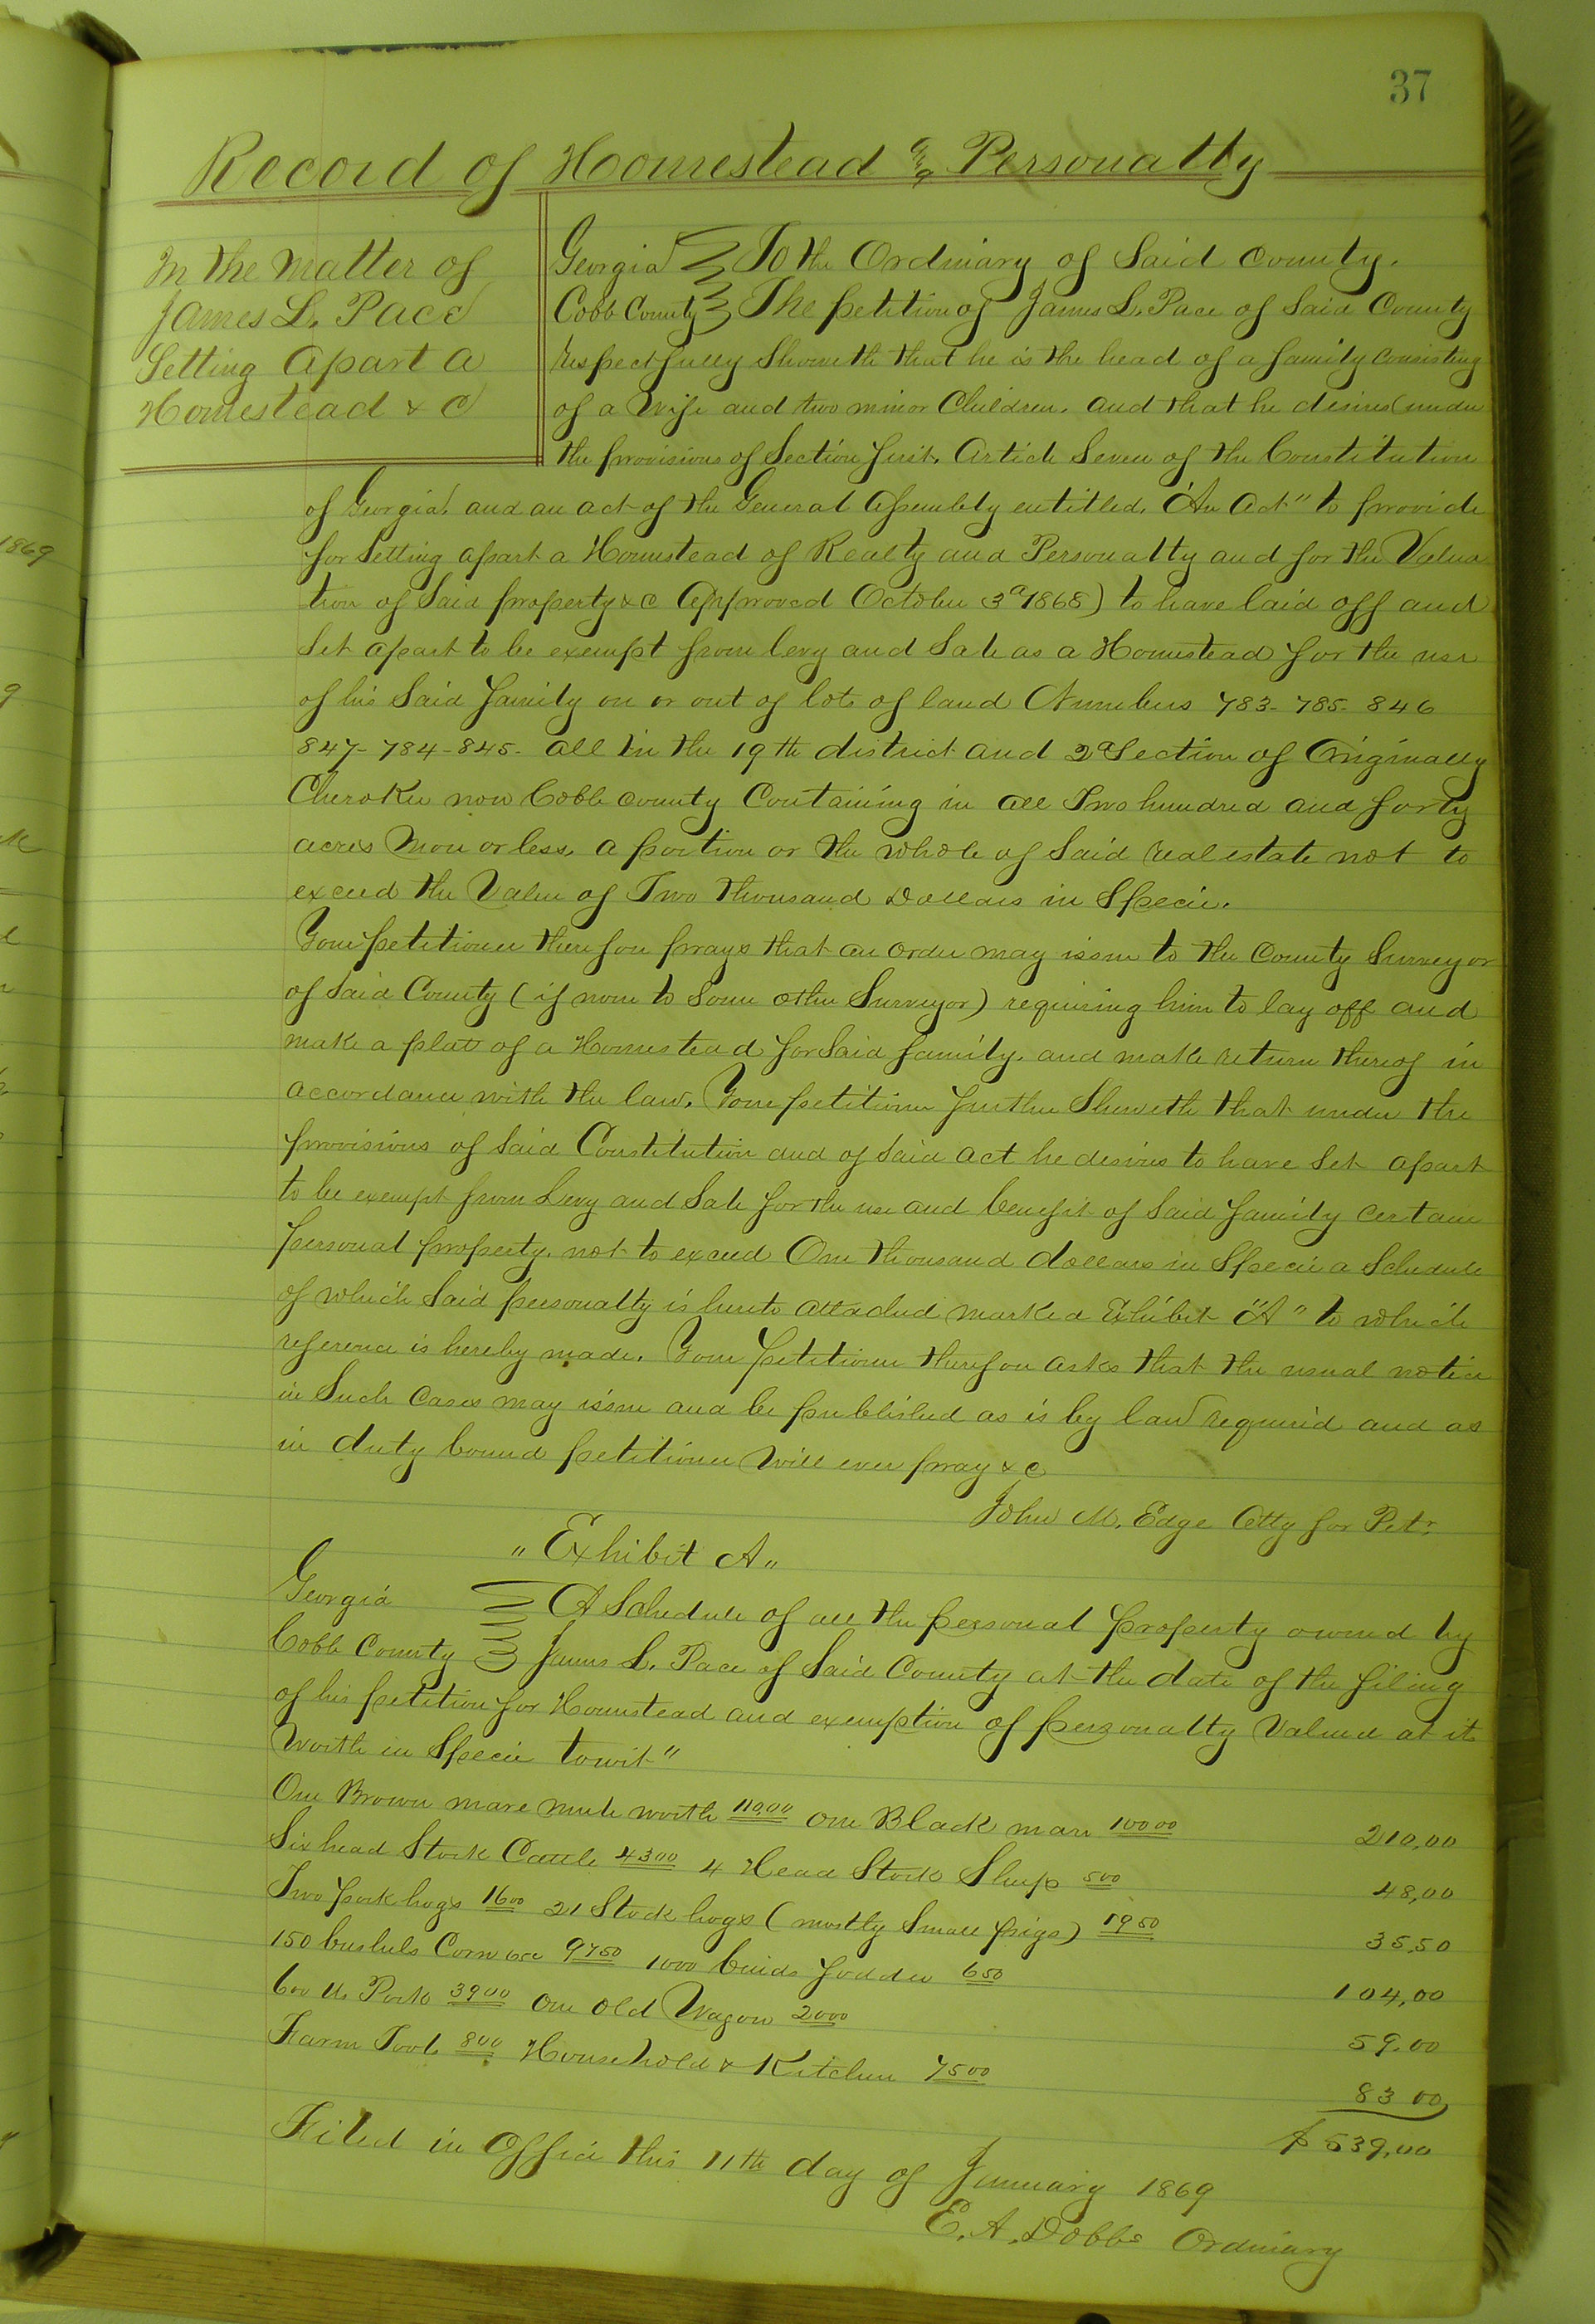 37
Record of Homestead & Personalty
In the matter of
James L. Pace
Setting apart a
Homestead & C
Georgia To the Ordinary of Said County.
Cobb County The petition of James L. Pace of Said County
respectfully Sheweth that he is the head of a family consisting
of a Wife and two minor Children. and that he desires (under
the provisions of Section first. Article Seven of the Constitution
of Georgia. and an act of the General Assembly entitled. "An Act" to provide
for Setting apart a Homestead of Realty and Personalty and for the Valua
tion of Said property & c Approved October 3d 1868) to have laid off and
Set apart to be exempt from levy and Sale as a Homestead for the use
of his Said family on or out of lots of land Numbers 783- 785- 846
847- 784- 845- all in the 19th district and 2d Section of Originally
Cherokee now Cobb county Containing in all Two hundred and forty
acres More or less, a portion or the whole of Said real estate not to
exceed the Value of Two thousand Dollars in Specie.
Your petitioner therefore prays that an order may issue to the County Surveyor
of Said County (if none to Some other Surveyor) requiring him to lay off and
make a plat of a Homestead for Said family. and make return thereof in
accordance with the law. Your petitioner further Sheweth that under the
provisions of Said Constitution and of Said act he desires to have Set apart
to be exempt from Levy and Sale for the use and benefit of Said family certain
personal property. not to exceed One thousand dollars in Specie a Schedule
of which Said personalty is hereto attached marked Exhibit "A" to which
reference is hereby made. Your petitioner therefore asks that the usual notice
in Such Cases may issue and be published as is by law required and as
in duty bound petitioner Will ever pray & c
John M. Edge Atty for Petr.
"Exhibit A"
Georgia A Schedule of all the personal property owned by
Cobb County James L. Pace of Said County at the date of the filing
of his petition for Homestead and exemption of personalty Valued at its
Worth in Specie towit"
One Brown mare mule worth 110.00 One Black mare 100 00 210,00
Six head Stock Cattle 43 00 4 Head Stock Sheep 5 00 48,00
Two pork hogs 16 00 21 Stock hogs (mostly Small pigs) 19 50 35,50
150 bushels Corn 65c 97 50 1000 binds fodder 6 50 104,00
600 lbs Pork 39 00 One old Wagon 20 00 59.00
Farm Tools 8 00 Household & Kitchen 75 00 83 00
$ 539,00
Filed in Office this 11th day of January 1869
E. A. Dobbs Ordinary
1869